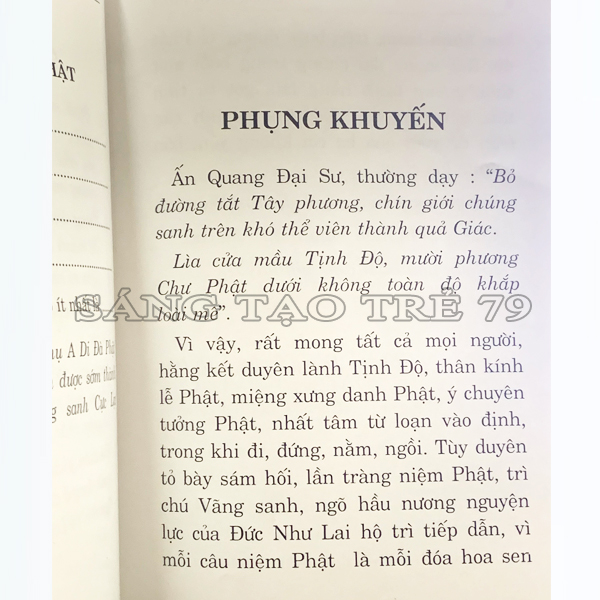 PHỤNG KHUYẾN
Ấn Quang Đại Sư, thường dạy : “Bỏ
đường tắt Tây phương, chín giới chúng
sanh trên khó thể viên thành quả Giác.
Lìa cửa mầu Tịnh Độ, mười phương
Chư Phật dưới không toàn độ khắp
loài mê”.
SÁNG TẠO TRẺ 79
Vì vậy, rất mong tất cả mọi người,
hằng kết duyên lành Tịnh Độ, thân kính
lễ Phật, miệng xưng danh Phật, ý chuyên
tưởng Phật, nhất tâm từ loạn vào định,
trong khi đi, đứng, nằm, ngồi. Tùy duyên
tỏ bày sám hối, lần tràng niệm Phật, trì
chú Vãng sanh, ngõ hầu nương nguyện
lực của Đức Như Lai hộ trì tiếp dẫn, vì
mỗi câu niệm Phật là mỗi đóa hoa sen
ít nhất
A Di Đà
được sớm
sanh Cực